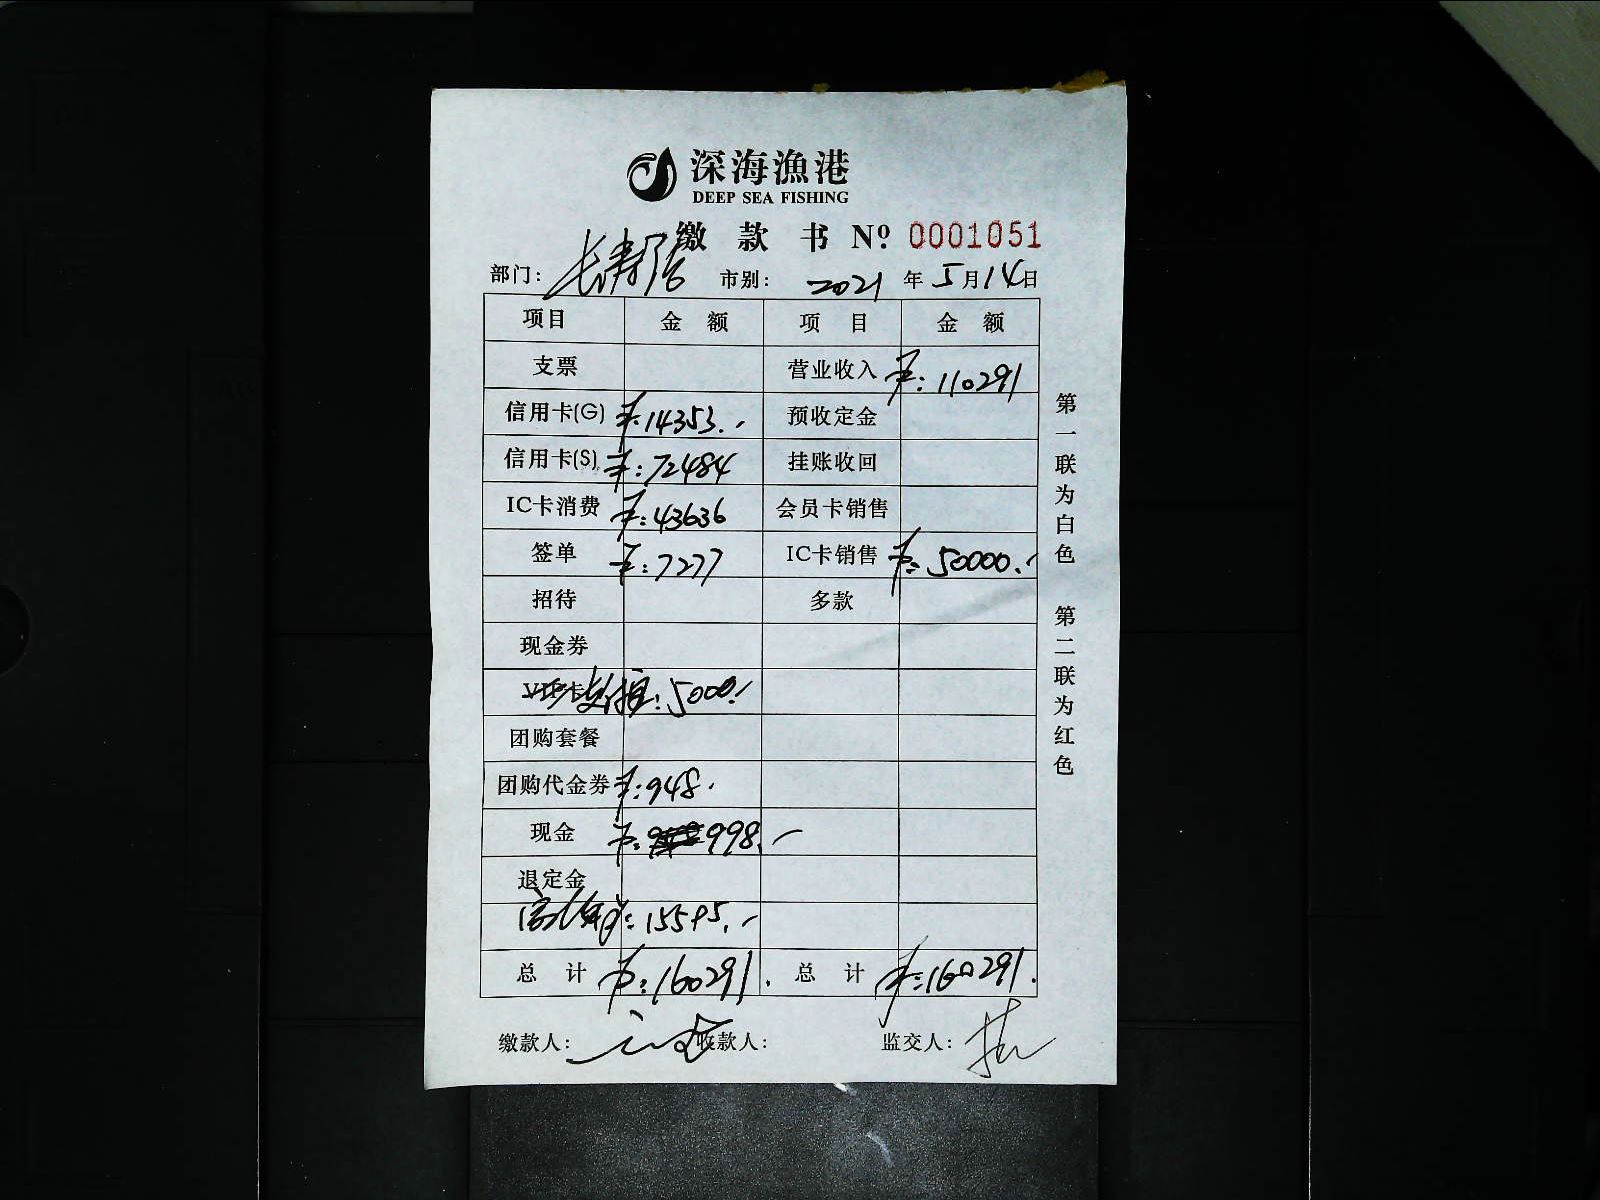 深海漁港
DEEP SEA FISHING
缴款书 Nº 0001051
部门: 长寿 市别: 2021 年 5 月 14 日
项目 金额 项目 金额
支票 营业收入 ¥:110291
信用卡(G) ¥:14353.- 预收定金
信用卡(S) ¥:72484 挂账收回
IC卡消费 ¥:43636 会员卡销售
签单 ¥:7277 IC卡销售 ¥:50000.-
招待 多款
现金券
VIP卡 :5000.-
团购套餐
团购代金券 ¥:948.
现金 ¥:998.-
退定金
¥:15595.-
总计 ¥:160291. 总计 ¥:160291.
缴款人: 收款人: 监交人:
第一联为白色 第二联为红色